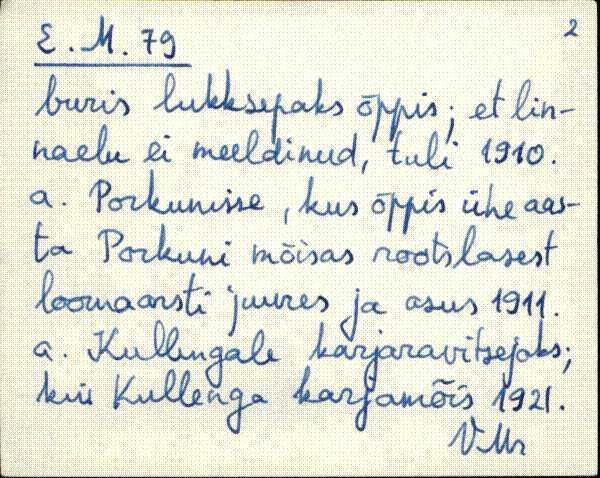 E. M. 79
2
buris lukksepaks õppis; et lin-
naelu ei meeldinud, tuli 1910.
a. Porkunisse, kus õppis ühe aas-
ta Porkuni mõisas rootslasest
loomaarsti juures ja asus 1911.
a. Kullengale karjaravitsejaks;
kui Kullenga karjamõis 1921.
VMr